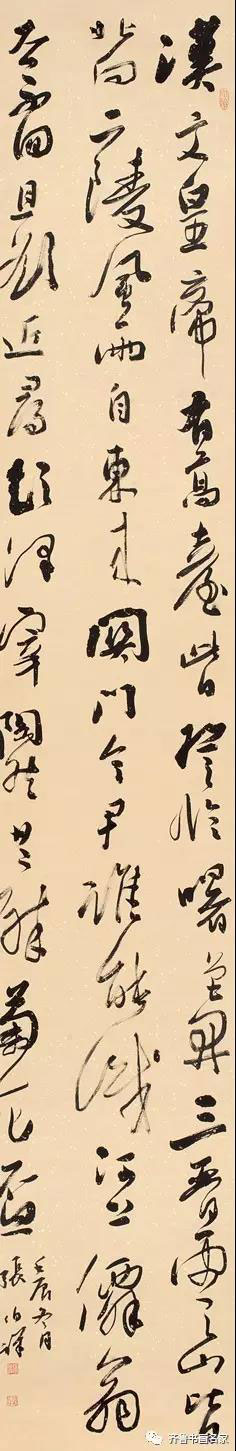 漢文皇帝有高臺此日登臨曙色開三晉雲山皆
北向二陵風雨自東來關門令尹誰能識河上僊翁
去不回且欲近尋彭澤宰陶然共醉菊花盃
壬辰冬月
張伯
齐鲁书画名家